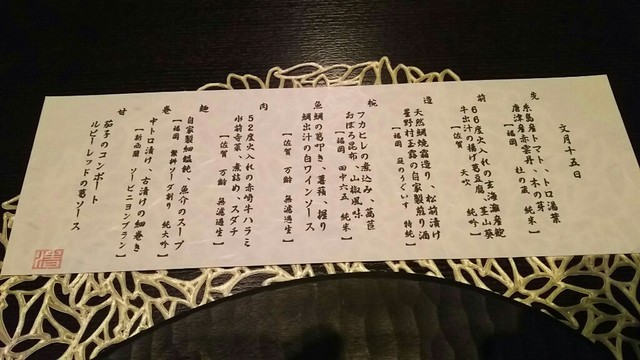 文月十五日
先 糸島産トマト、トロ湯葉
唐津産赤雲丹、木の芽
【福岡 杜の蔵 純米】
前 66度火入れの玄海灘産鮑
牛出汁の揚げ葛豆腐、茎山葵
【佐賀 天吹 純吟】
造 天然鯛焼霜造り、松前漬け
星野村玉露の自家製煎り酒
【福岡 庭のうぐいす 特純】
椀 フカヒレの煮込み、萵苣
おぼろ昆布、山椒風味
【福岡 田中六五 純米】
魚 鯛の葛叩き、薯蕷、握り
鯛出汁の白ワインソース
【佐賀 万齢 無濾過生】
肉 52度火入れの赤崎牛ハラミ
小前寺菜、煮詰め、スダチ
【佐賀 万齢 無濾過生】
麺 自家製細饂飩、魚介のスープ
【福岡 繁桝ソーダ割り 純大吟】
巻 中トロ漬け、古漬けの細巻き
【新西蘭 ソービニヨンブラン】
甘 茄子のコンポート
ルビーレッドの葛ソース